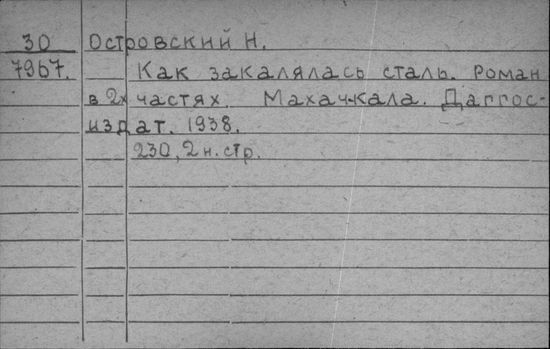 30 Островский Н.
7967. Как закалялась сталь. Роман
в 2х частях. Махач-кала. Даггос-
издат. 1938.
230, 2 н. стр.